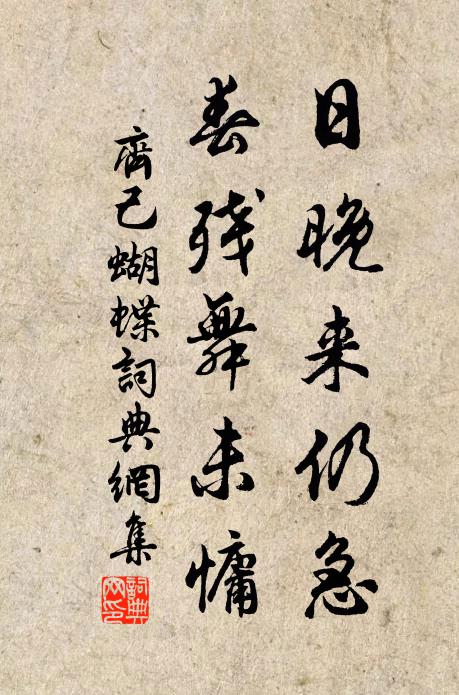 日晚来仍急
春残舞未慵
齊己蝴蝶詞典網集
詞典
网印